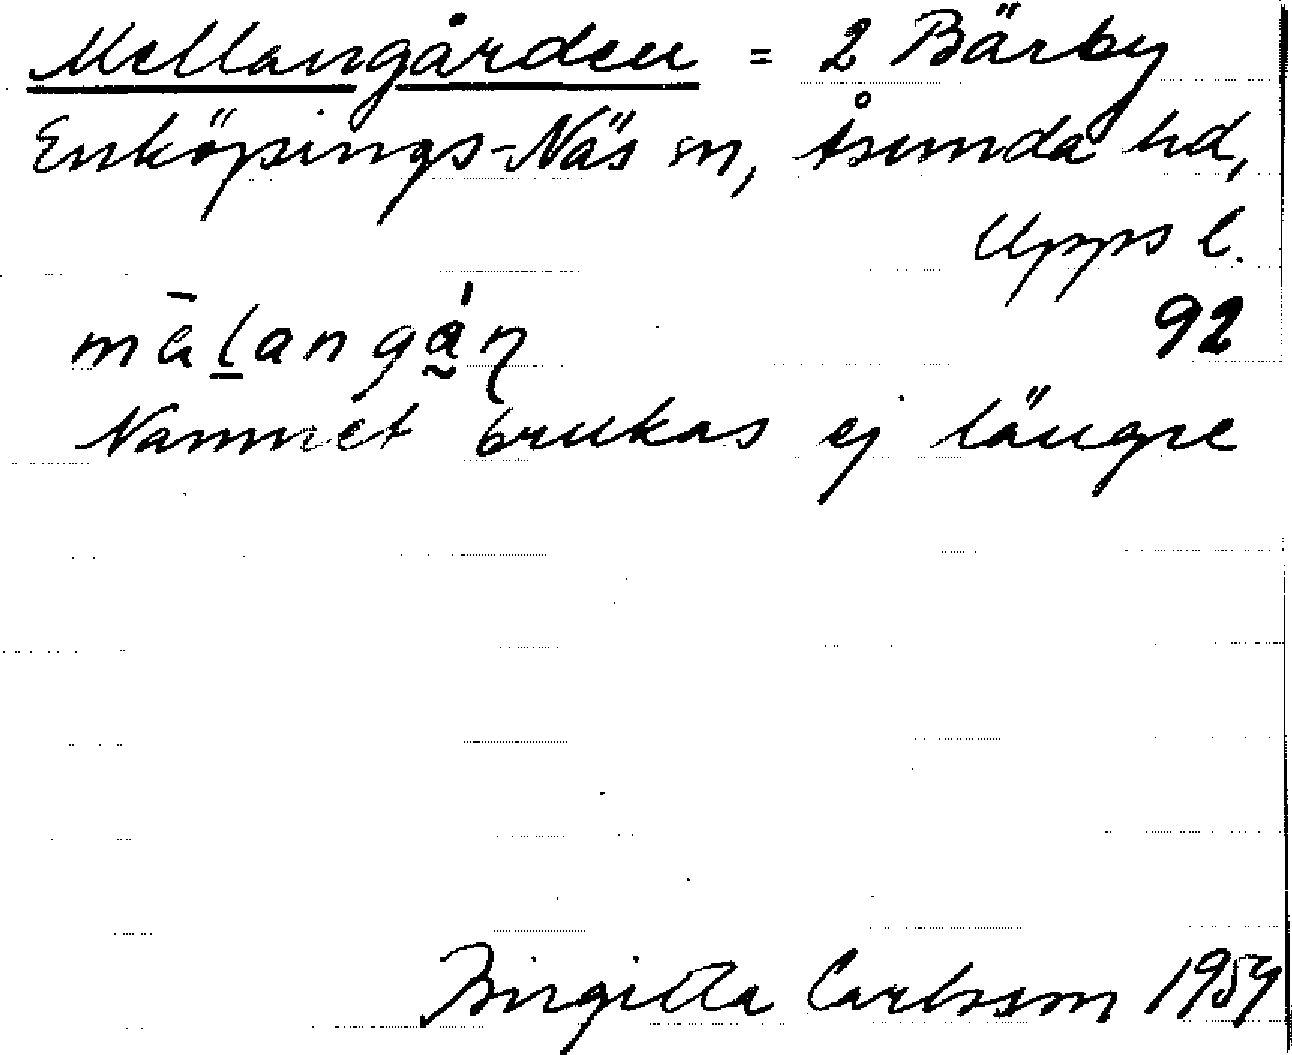 Mellangården = 2 Bärby
Enköpings-Näs sn, Åsunda hd,
Upps l.
92
Namnet brukas ej längre
Birgitta Carlsson 1954